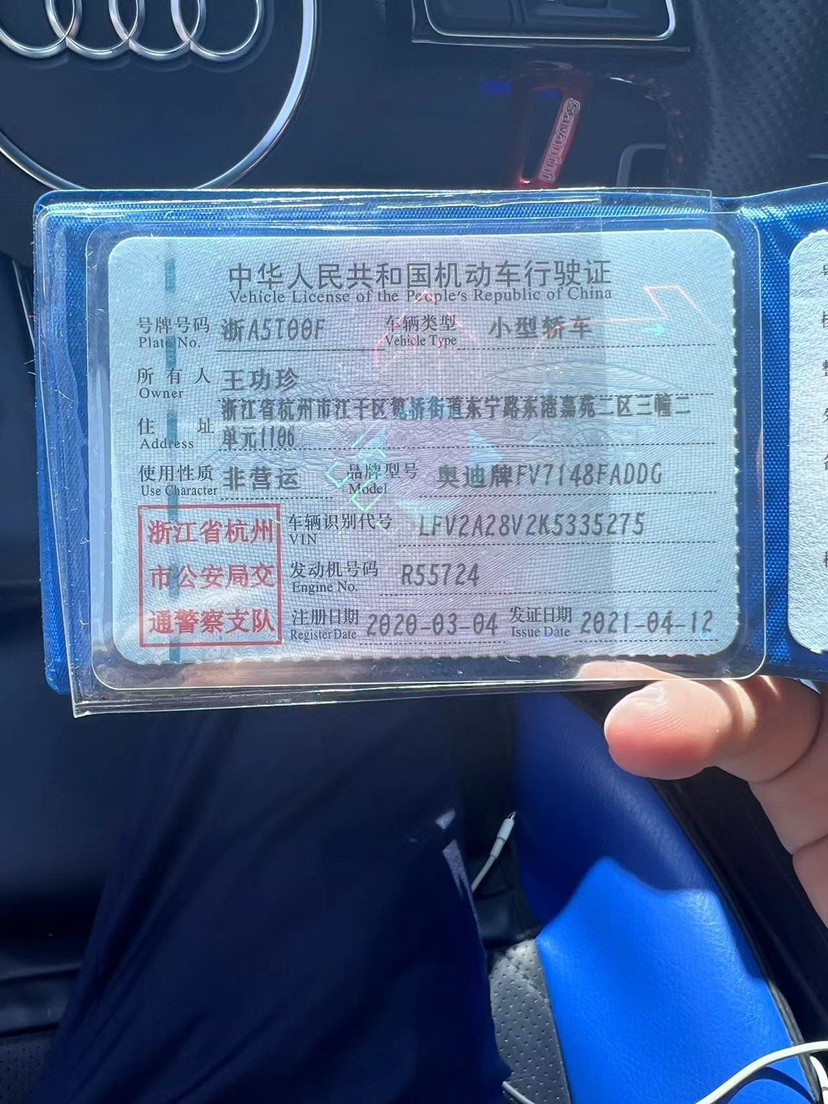 中华人民共和国机动车行驶证
Vehicle License of the People's Republic of China
号牌号码 浙A5T00F 车辆类型 小型轿车
Plate No. Vehicle Type
所有人 王功珍
Owner
浙江省杭州市江干区 桥街道东宁路东港嘉苑二区三幢二
住址 单元1106
Address
使用性质 非营运 品牌型号 奥迪牌FV7148FADDG
Use Character Model
浙江省杭州 车辆识别代号 LFV2A28V2K5335275
VIN
市公安局交 发动机号码 R55724
Engine No.
通警察支队 注册日期 2020-03-04 发证日期 2021-04-12
Register Date Issue Date